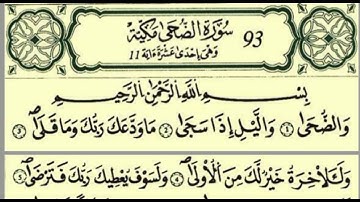 سُورَةُ الضُّحَىٰ مَكِّيَّة 93
وَهِىَ إِحْدَى عَشْرَةَ ءَايَة 11
بِسْمِ اللَّهِ الرَّحْمَٰنِ الرَّحِيمِ
وَالضُّحَىٰ ١ وَاللَّيْلِ إِذَا سَجَىٰ ٢ مَا وَدَّعَكَ رَبُّكَ وَمَا قَلَىٰ ٣
وَلَلْآخِرَةُ خَيْرٌ لَّكَ مِنَ الْأُولَىٰ ٤ وَلَسَوْفَ يُعْطِيكَ رَبُّكَ فَتَرْضَىٰ ٥